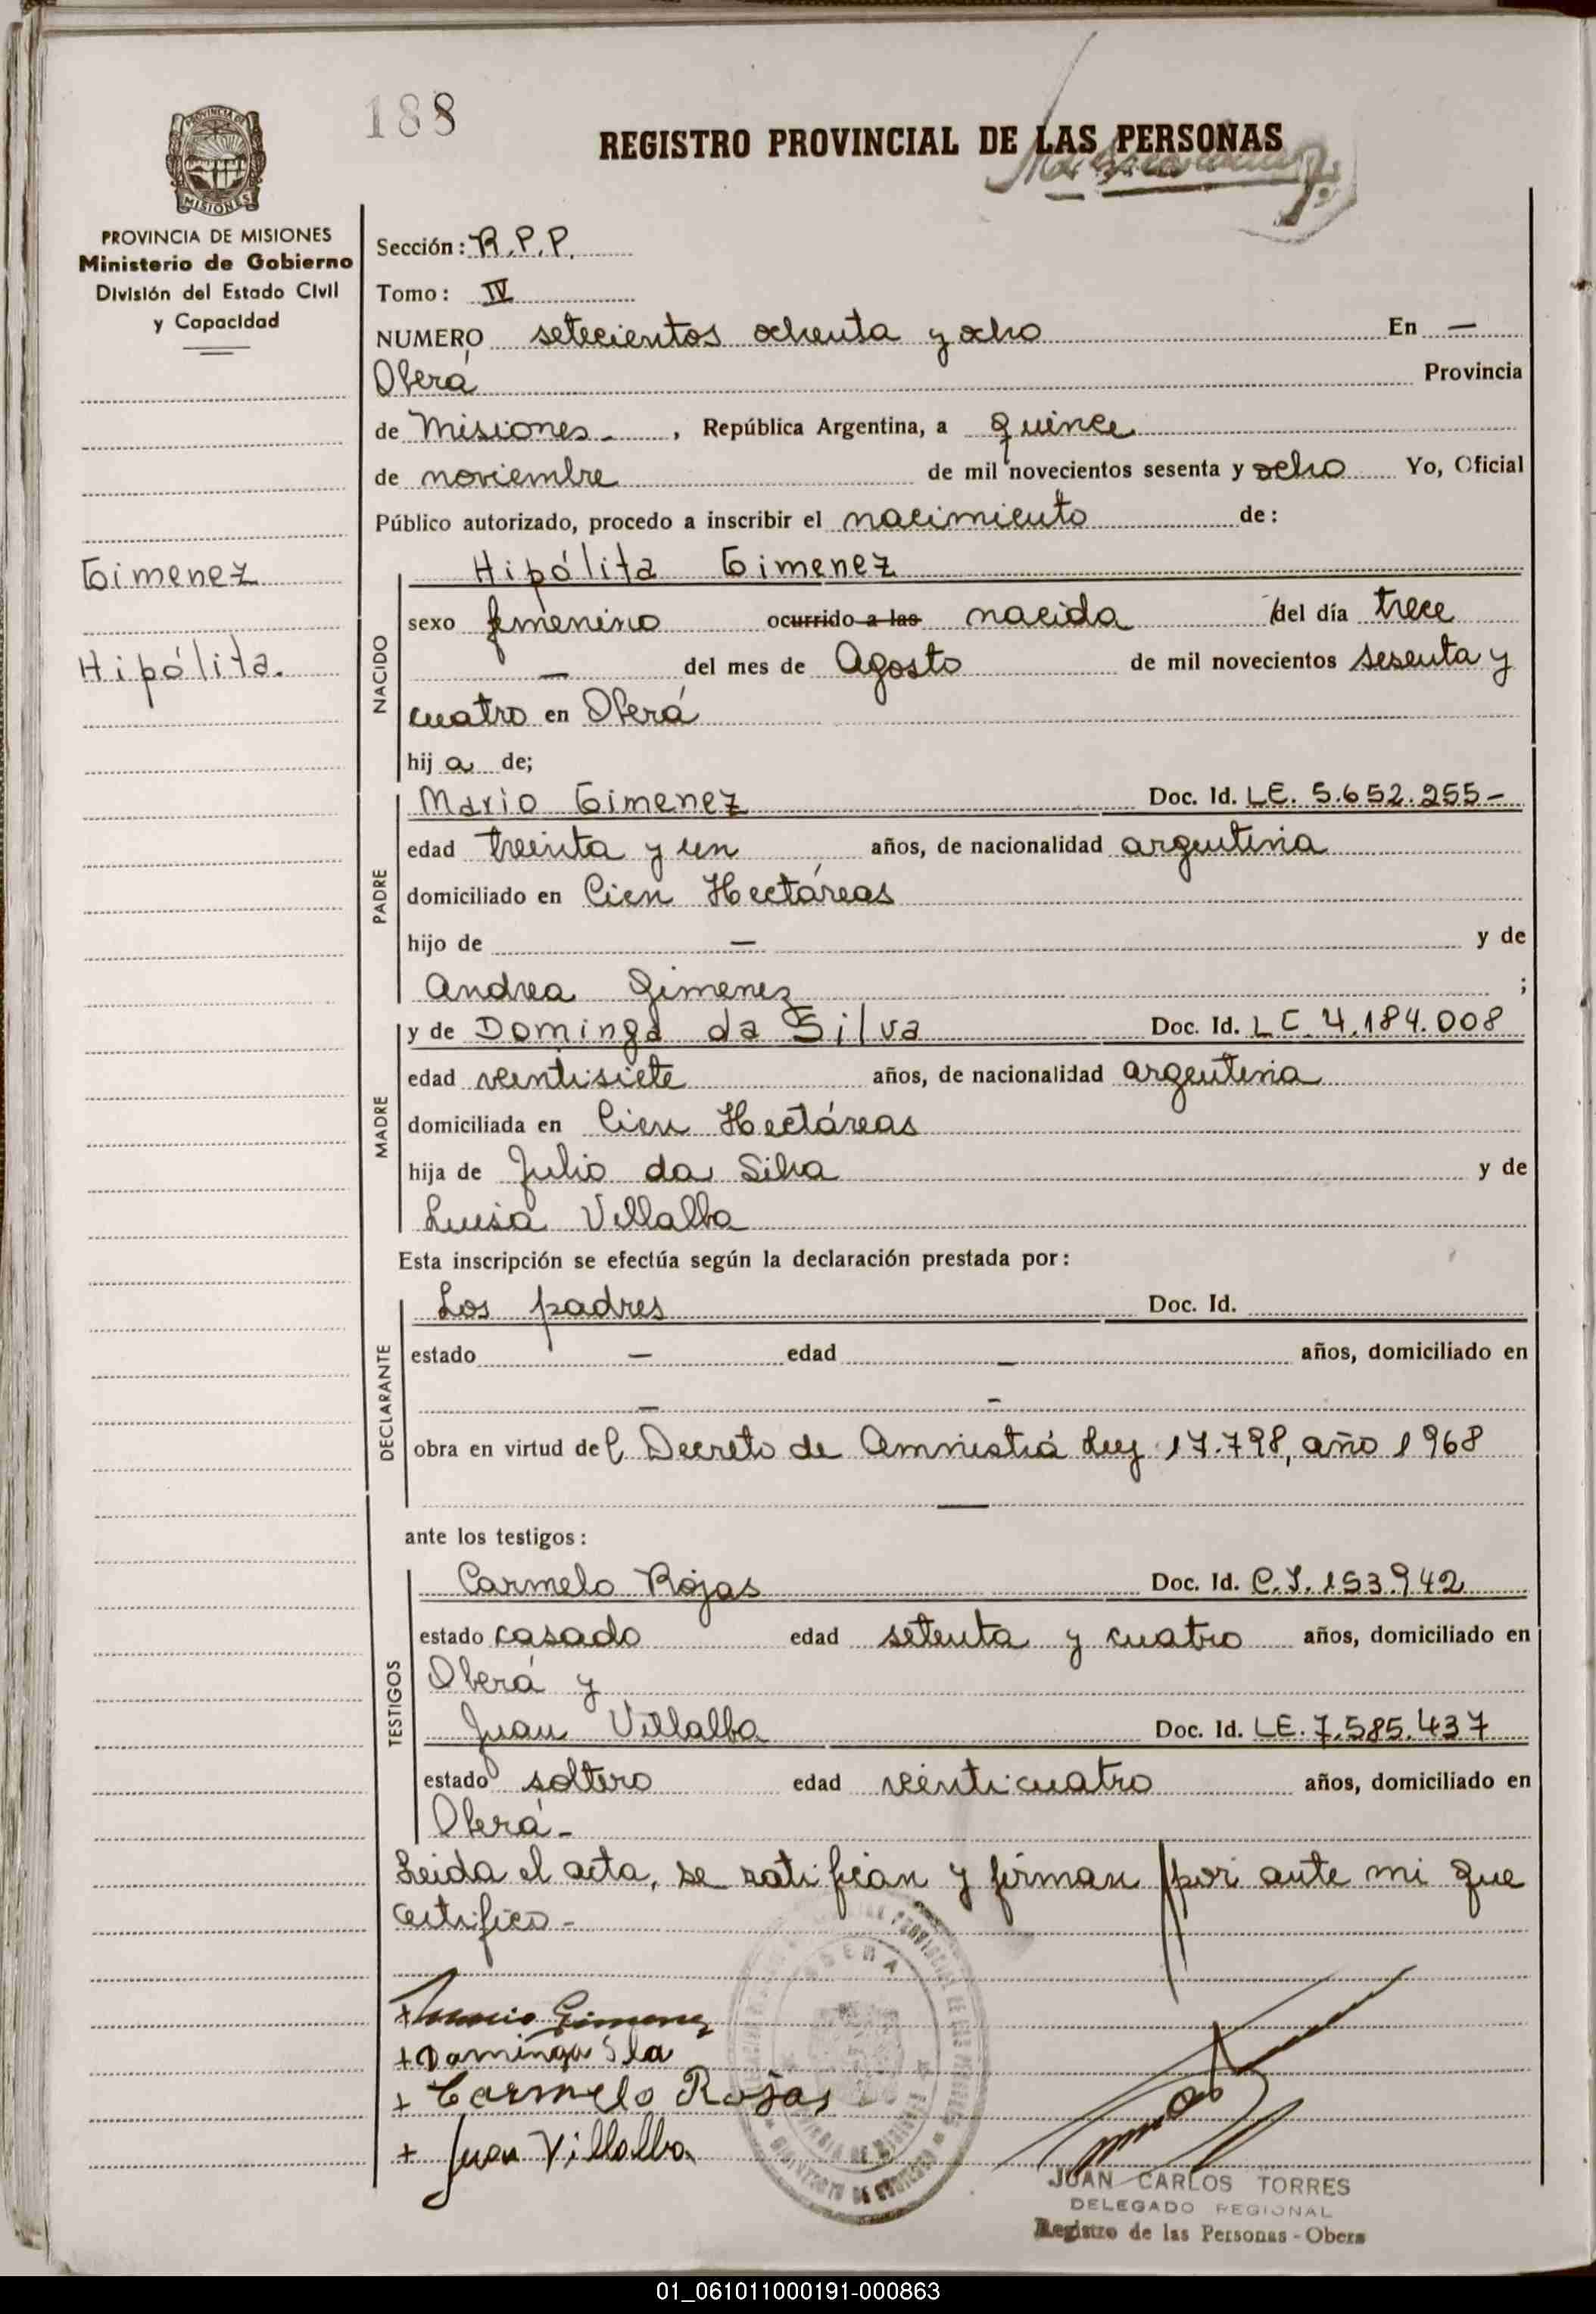 188
REGISTRO PROVINCIAL DE LAS PERSONAS
PROVINCIA DE
MISIONES
PROVINCIA DE MISIONES
Ministerio de Gobierno
División del Estado Civil
y Capacidad
Sección: R.P.P.
Tomo: IV
NUMERO setecientos ochenta y ocho En —
Oberá Provincia
de Misiones - , República Argentina, a quince
de noviembre de mil novecientos sesenta y ocho Yo, Oficial
Público autorizado, procedo a inscribir el nacimiento de:
Gimenez
Hipólita.
NACIDO
Hipólita Gimenez
sexo femenino ocurrido a las nacida del día trece
— del mes de Agosto de mil novecientos sesenta y
cuatro en Oberá
hija de;
PADRE
Mario Gimenez Doc. Id. LE. 5.652.255-
edad treinta y un años, de nacionalidad argentina
domiciliado en Cien Hectáreas
hijo de — y de
Andrea Gimenez ;
MADRE
y de Dominga da Silva Doc. Id. LC. 4.184.008
edad veintisiete años, de nacionalidad argentina
domiciliada en Cien Hectáreas
hija de Julio da Silva y de
Luisa Villalba
Esta inscripción se efectúa según la declaración prestada por:
DECLARANTE
Los padres Doc. Id.
estado — edad — años, domiciliado en
— -
obra en virtud del Decreto de Amnistiá Ley 17.798, año 1968
—
ante los testigos:
TESTIGOS
Carmelo Rojas Doc. Id. C.I. 153.942
estado casado edad setenta y cuatro años, domiciliado en
Oberá y
Juan Villalba Doc. Id. LE. 7.585.437
estado soltero edad veinticuatro años, domiciliado en
Oberá-
Leida el acta, se ratifican y firman por ante mi que
certifico-
+ Gimenez
+ Dominga Sla
+ Carmelo Rojas
+ Juan Villalba
OBERA
JUAN CARLOS TORRES
DELEGADO REGIONAL
Registro de las Personas - Obera
01_061011000191-000863